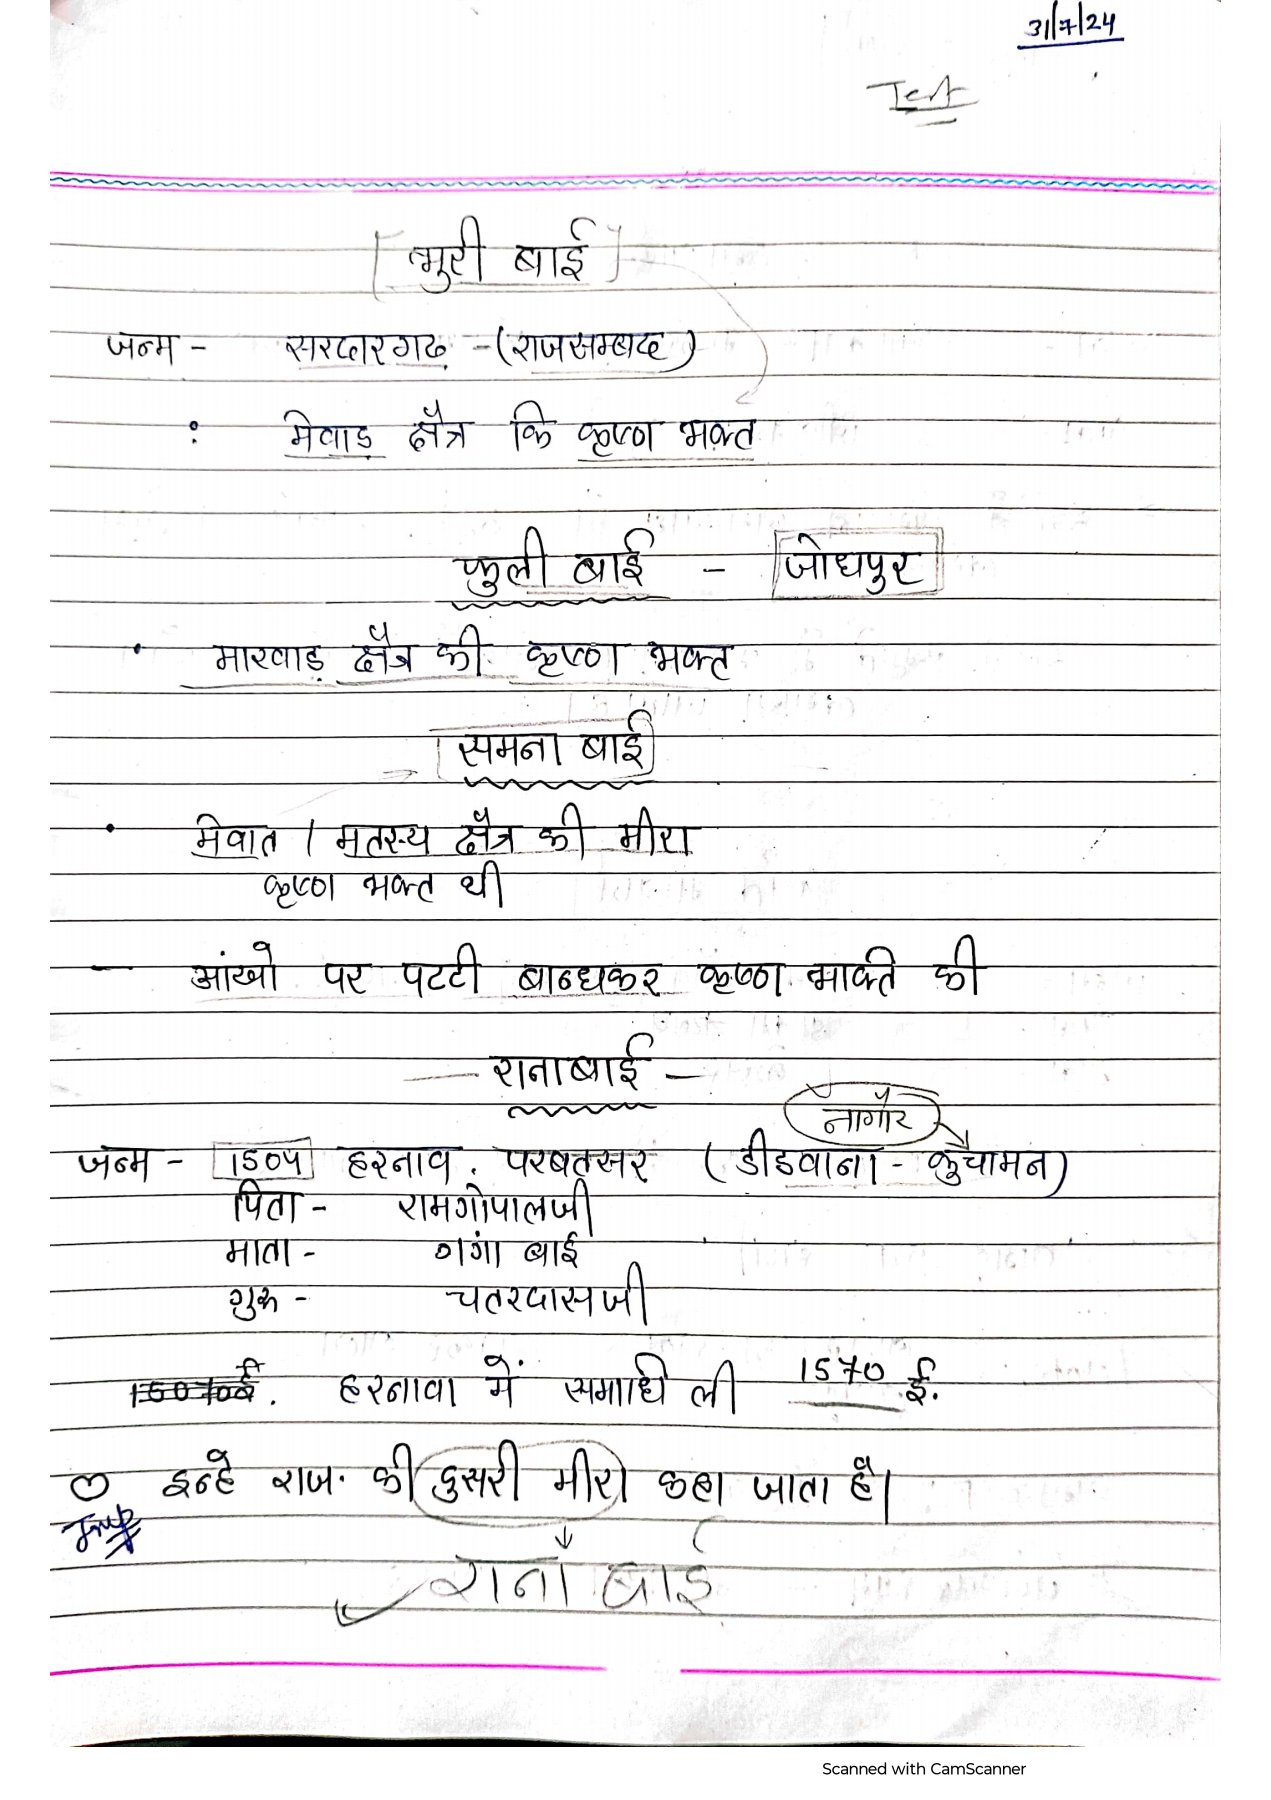 31/7/24
Test
[भुरी बाई]
जन्म - सरदारगढ - (राजसम्बद)
: मेवाड़ क्षैत्र कि कृष्ण भक्त
फुली बाई - जोधपुर
• मारवाड़ क्षैत्र की कृष्ण भक्त
समना बाई
• मेवात / मतस्य क्षैत्र की मीरा
कृष्ण भक्त थी
— आंखो पर पटटी बान्धकर कृष्ण भाक्ति की
— रानाबाई —
नागौर
जन्म - 1504 हरनाव . परबतसर (डीडवाना - कुचैामन)
पिता - रामगोपालजी
माता - गंगा बाई
गुरु - चतरदासजी
हरनावा में समाधि ली 1570 ई.
इन्हे राज. की दुसरी मीरा कहा जाता है।
Imp
राना बाई
Scanned with CamScanner